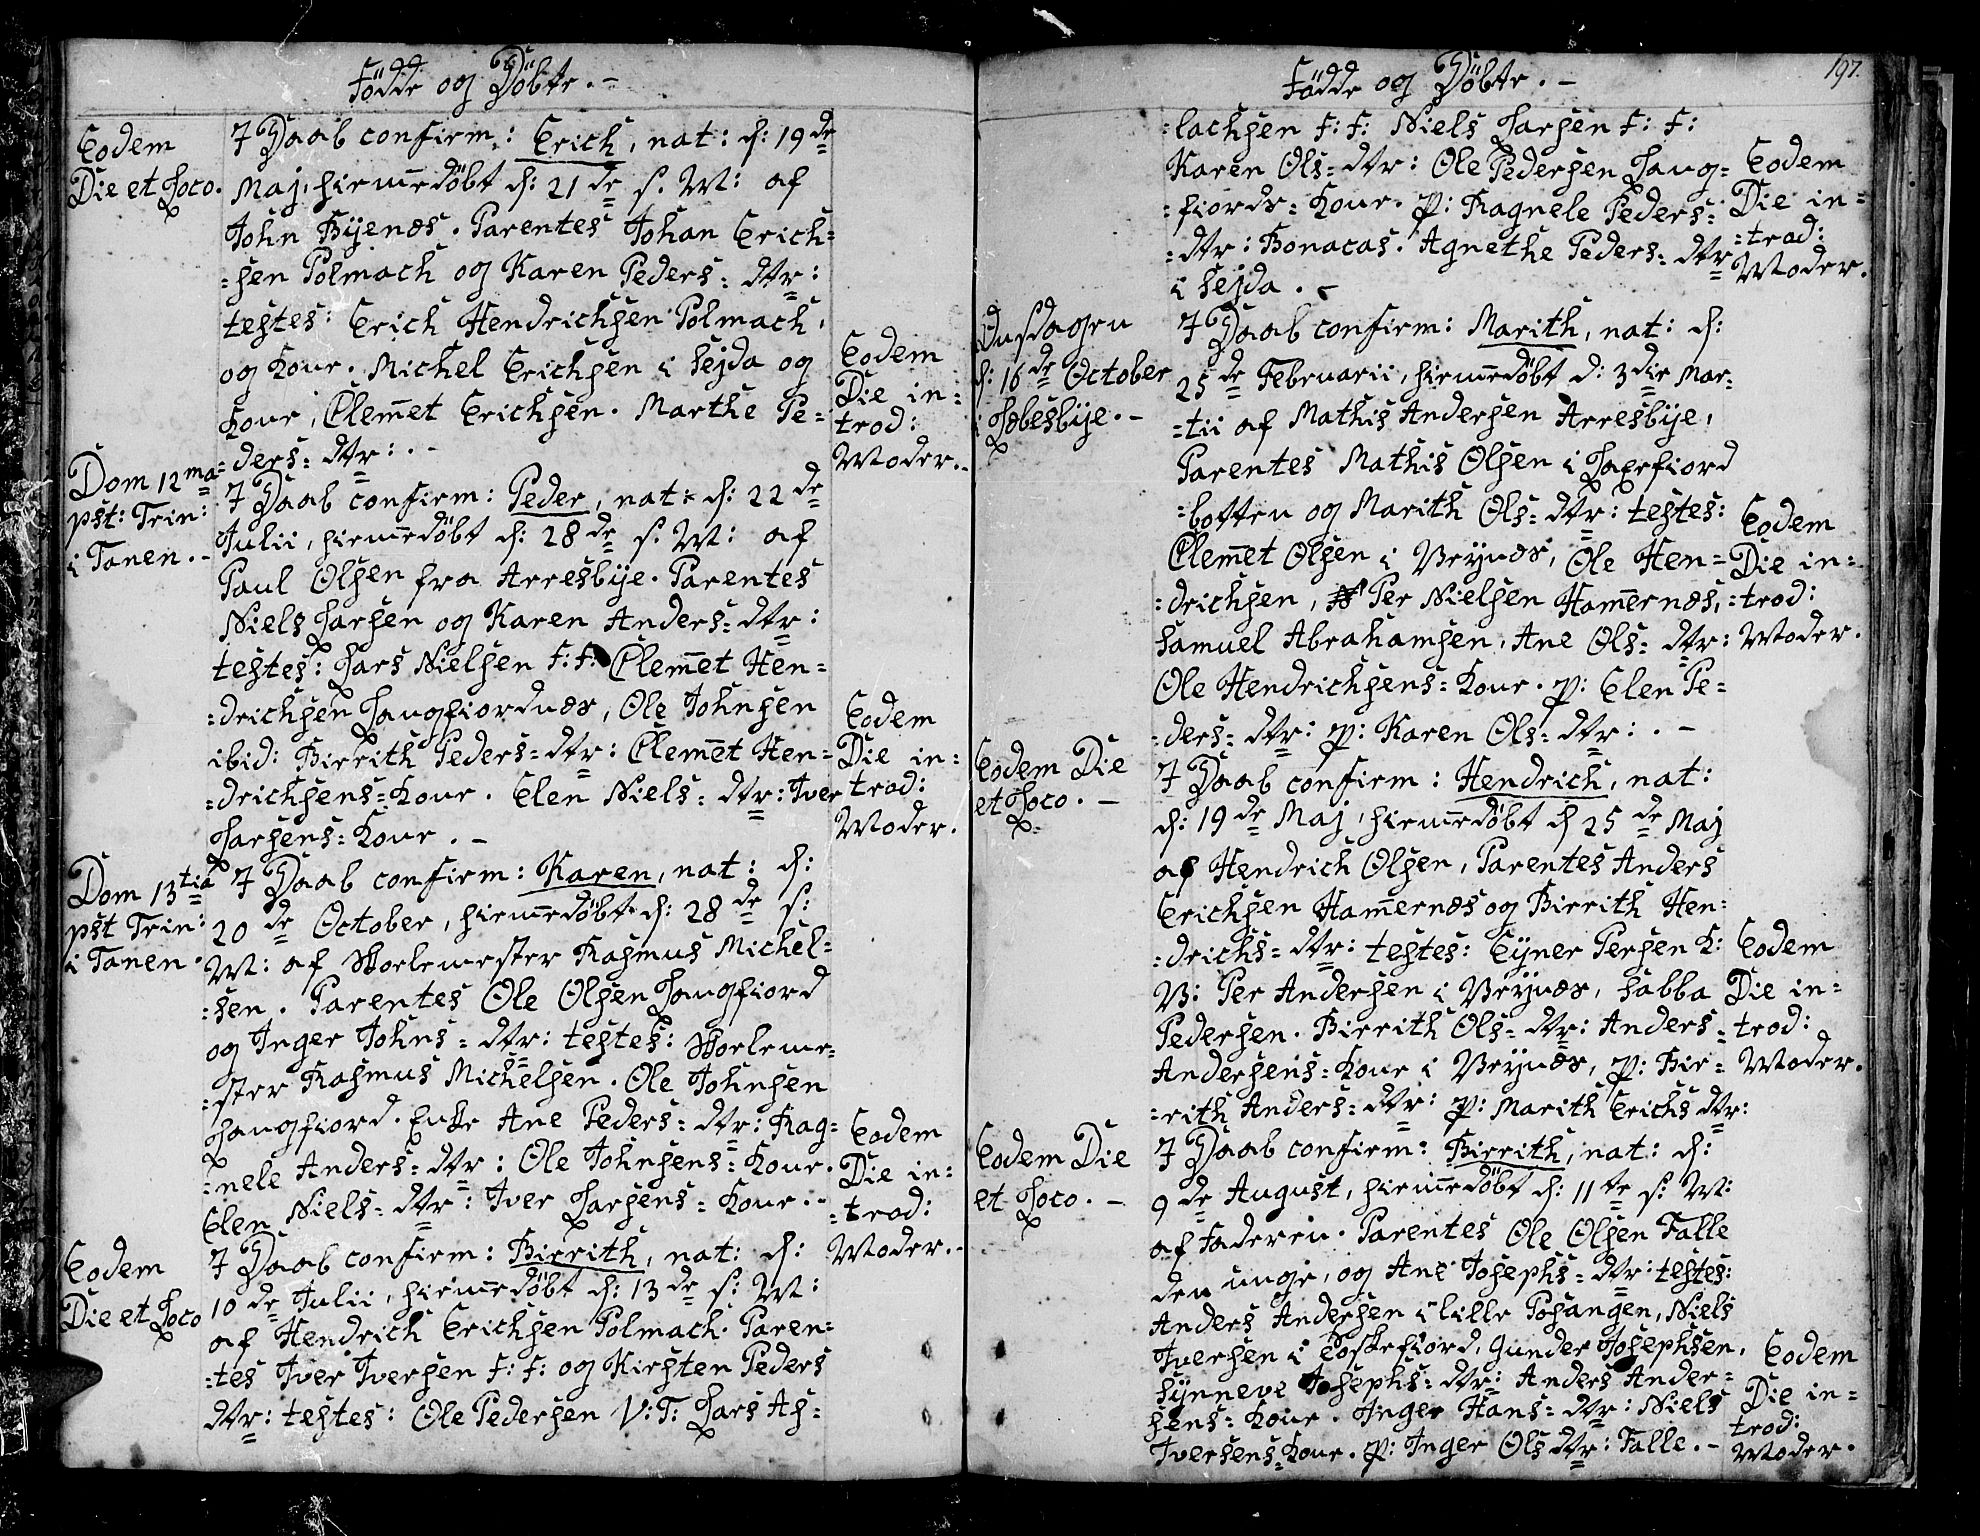 Födde og Döbte. -
Eodem
Die et Loco.
I Daab confirm: Erich, nat: d: 19de
Maj, hiemmedöbt d: 21de s. M: af
John Byenæs. Parentes Johan Erich=
=sen Polmach og Karen Peders=dtr:
testes: Erich Hendrichsen Polmach,
og Kone. Michel Erichsen i Sejda og
Kone, Clemet Erichsen. Marthe Pe=
=ders=dtr: . -
Eodem
Die in=
trod:
Moder. -
Dom 12ma
pst: Trin:
i Tanen. -
I Daab confirm: Peder, nat: d: 22de
Julii, hiemmedöbt d: 28de s. M: af
Paul Olsen fra Arresbye. Parentes
Niels Larsen og Karen Anders=dtr:
testes: Lars Nielsen F: F: Clemet Hen=
=drichsen Langfiordnæs, Ole Johnsen
ibid: Birrith Peders=dtr: Clemet Hen=
=drichsens=Kone. Elen Niels=dtr: Iver
Larsens=Kone. -
Eodem
Die in=
trod:
Moder.
Dom 13tia
pst Trin:
i Tanen.
I Daab confirm: Karen, nat: d:
20de October, hiemmedöbt d: 28de s:
M: af Skolemester Rasmus Michel=
=sen. Parentes Ole Olsen Langfiord
og Inger Johns=dtr: testes: Skoleme=
=ster Rasmus Michelsen. Ole Johnsen
Langfiord. Enke Ane Peders=dtr: Rag=
=nele Anders=dtr: Ole Johnsens=Kone.
Elen Niels=dtr: Iver Larsens=Kone. -
Eodem
Die in=
=trod:
Moder. -
Eodem
Die et Loco
I Daab confirm: Birrith, nat: d:
10de Julii, hiemmedöbt d: 13de s: M:
af Hendrich Erichsen Polmach. Paren=
=tes Iver Iversen F: F: og Kirsten Peders
dtr: testes: Ole Pedersen V: T: Lars As=
Födde og Döbte. -
197.
=lachsen F: F: Niels Larsen F: F:
Karen Ols=dtr: Ole Pedersen Lang=
=fiords=Kone. P: Ragnele Peders=
=dtr: Bonacas. Agnethe Peders=dtr
i Sejda. -
Eodem
Die in=
=trod:
Moder.
Onsdagen
d: 16de October
i Lebesbye. -
I Daab confirm: Marith, nat: d:
25de Februarii, hiemmedöbt d: 3die Mar=
=tii af Mathis Andersen Arresbye,
Parentes Mathis Olsen i Laxefiord
=botten og Marith Ols=dtr: testes:
Clemet Olsen i Vejnæs, Ole Hen=
=drichsen, Per Nielsen Hamernæs,
Samuel Abrahamsen, Ane Ols=dtr:
Ole Hendrichsens=Kone. P: Elen Pe=
=ders=dtr: P: Karen Ols=dtr: . -
Eodem
Die in=
=trod:
Moder.
Eodem Die
et Loco. -
I Daab confirm: Hendrich, nat:
d: 19de Maj, hiemmedöbt d 25de Maj
af Hendrich Olsen, Parentes Anders
Erichsen Hamernæs og Birrith Hen=
=drichs=dtr: testes: Eyner Persen K:
B: Per Andersen i Vejnæs, Sabba
Pedersen. Birrith Ols=dtr: Anders
Andersens=Kone i Vejnæs, P: Bir=
=rith Anders=dtr: P: Marith Erichs dtr:
Eodem
Die in=
=trod:
Moder.
Eodem Die
et Loco. -
I Daab confirm: Birrith, nat: d:
9de August, hiemmedöbt d: 11te s: M:
af Faderen. Parentes Ole Olsen Falle
den unge, og Ane Josephs=dtr: testes:
Anders Andersen i lille Posangen, Niels
Iversen i Eoskefiord, Gunder Josephsen,
Synneve Josephs=dtr: Anders Ander=
sens=Kone. Inger Hans=dtr: Niels
Iversens=Kone. P: Inger Ols dtr: Falle. -
Eodem
Die in=
trod:
Moder.